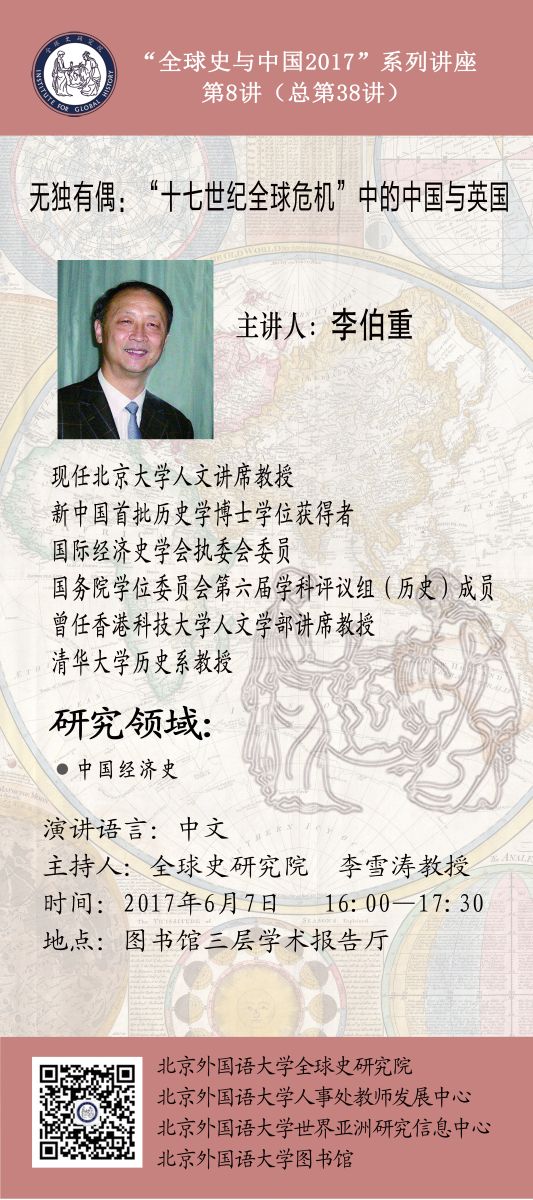 全球史研究院
INSTITUTE FOR GLOBAL HISTORY
“全球史与中国2017”系列讲座
第8讲（总第38讲）
无独有偶：“十七世纪全球危机”中的中国与英国
主讲人：李伯重
现任北京大学人文讲席教授
新中国首批历史学博士学位获得者
国际经济史学会执委会委员
国务院学位委员会第六届学科评议组（历史）成员
曾任香港科技大学人文学部讲席教授
清华大学历史系教授
研究领域：
● 中国经济史
演讲语言：中文
主持人：全球史研究院 李雪涛教授
时间：2017年6月7日 16:00—17:30
地点：图书馆三层学术报告厅
北京外国语大学全球史研究院
北京外国语大学人事处教师发展中心
北京外国语大学世界亚洲研究信息中心
北京外国语大学图书馆